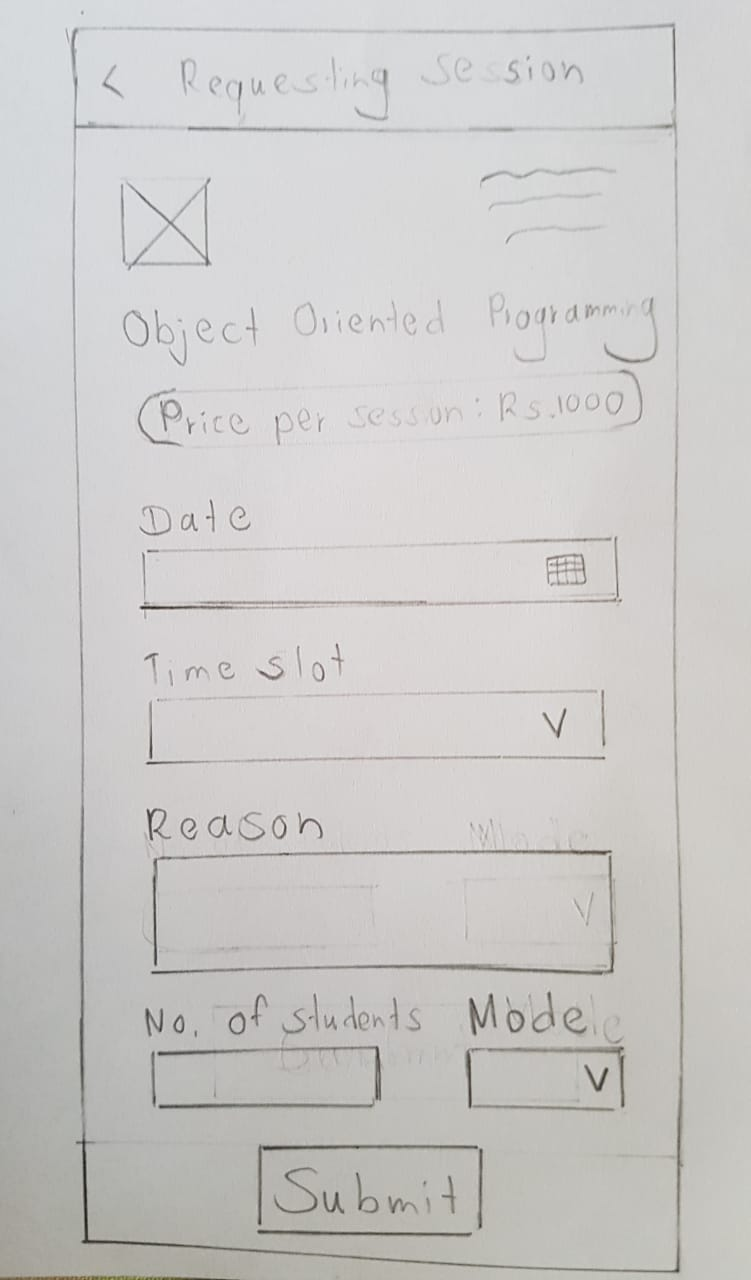 < Requesting Session
Object Oriented Programming
Price per session: Rs.1000
Date
Time slot
V
Reason
Mode
V
No. of students Mode
V
Submit